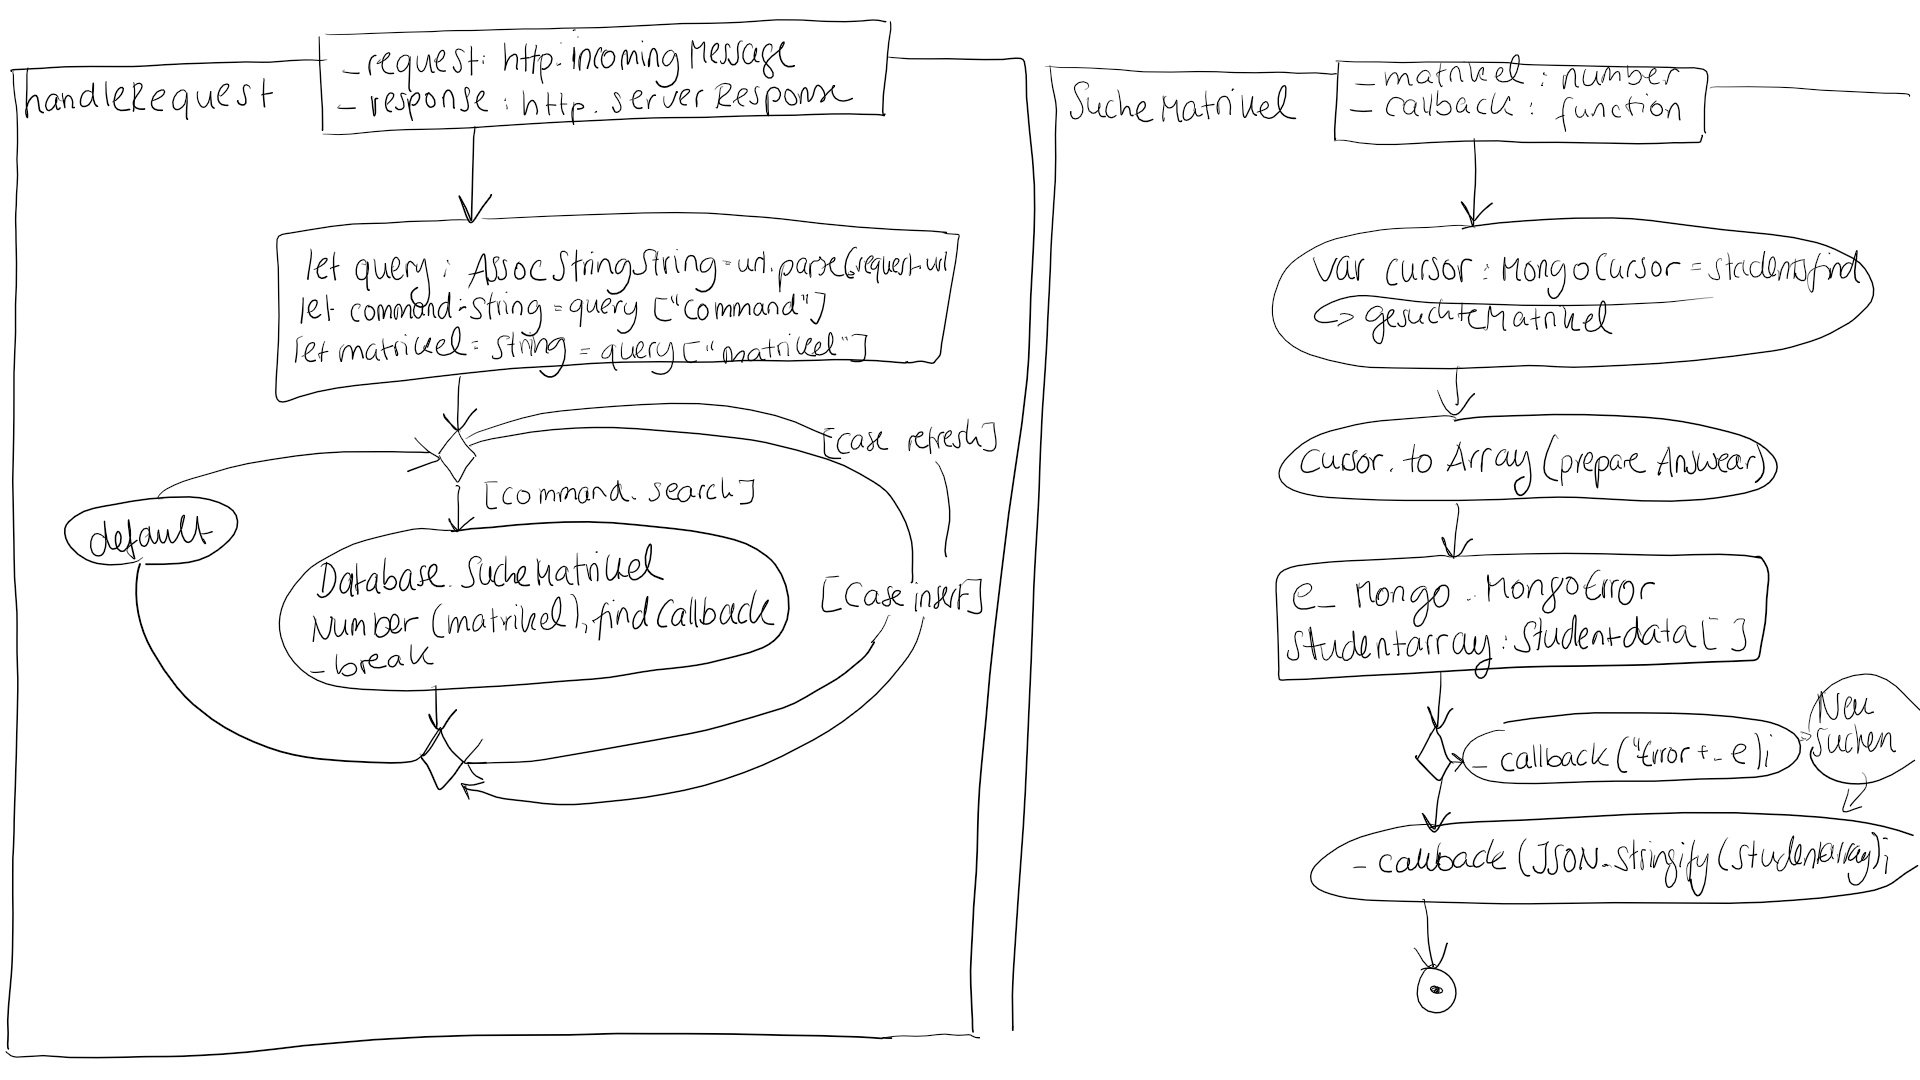 handleRequest
_ request: http.incomingMessage
_ response : http.serverResponse
let query : AssocStringString = url.parse(request.url
let command: String = query ["Command"]
let matrikel: string = query ["matrikel"]
[case refresh]
[command.search]
default
Database.SucheMatrikel
Number (matrikel), findCallback
_ break
[Case insert]
SucheMatrikel
_ matrikel : number
_ callback : function
var cursor : MongoCursor = students.find
↪ gesuchteMatrikel
Cursor.toArray (prepare Answear)
e_ Mongo . MongoError
Studentarray : Studentdata [ ]
_ callback ("Error + _ e);
Neu
Suchen
_ callback (JSON.Stringify (studentarray);